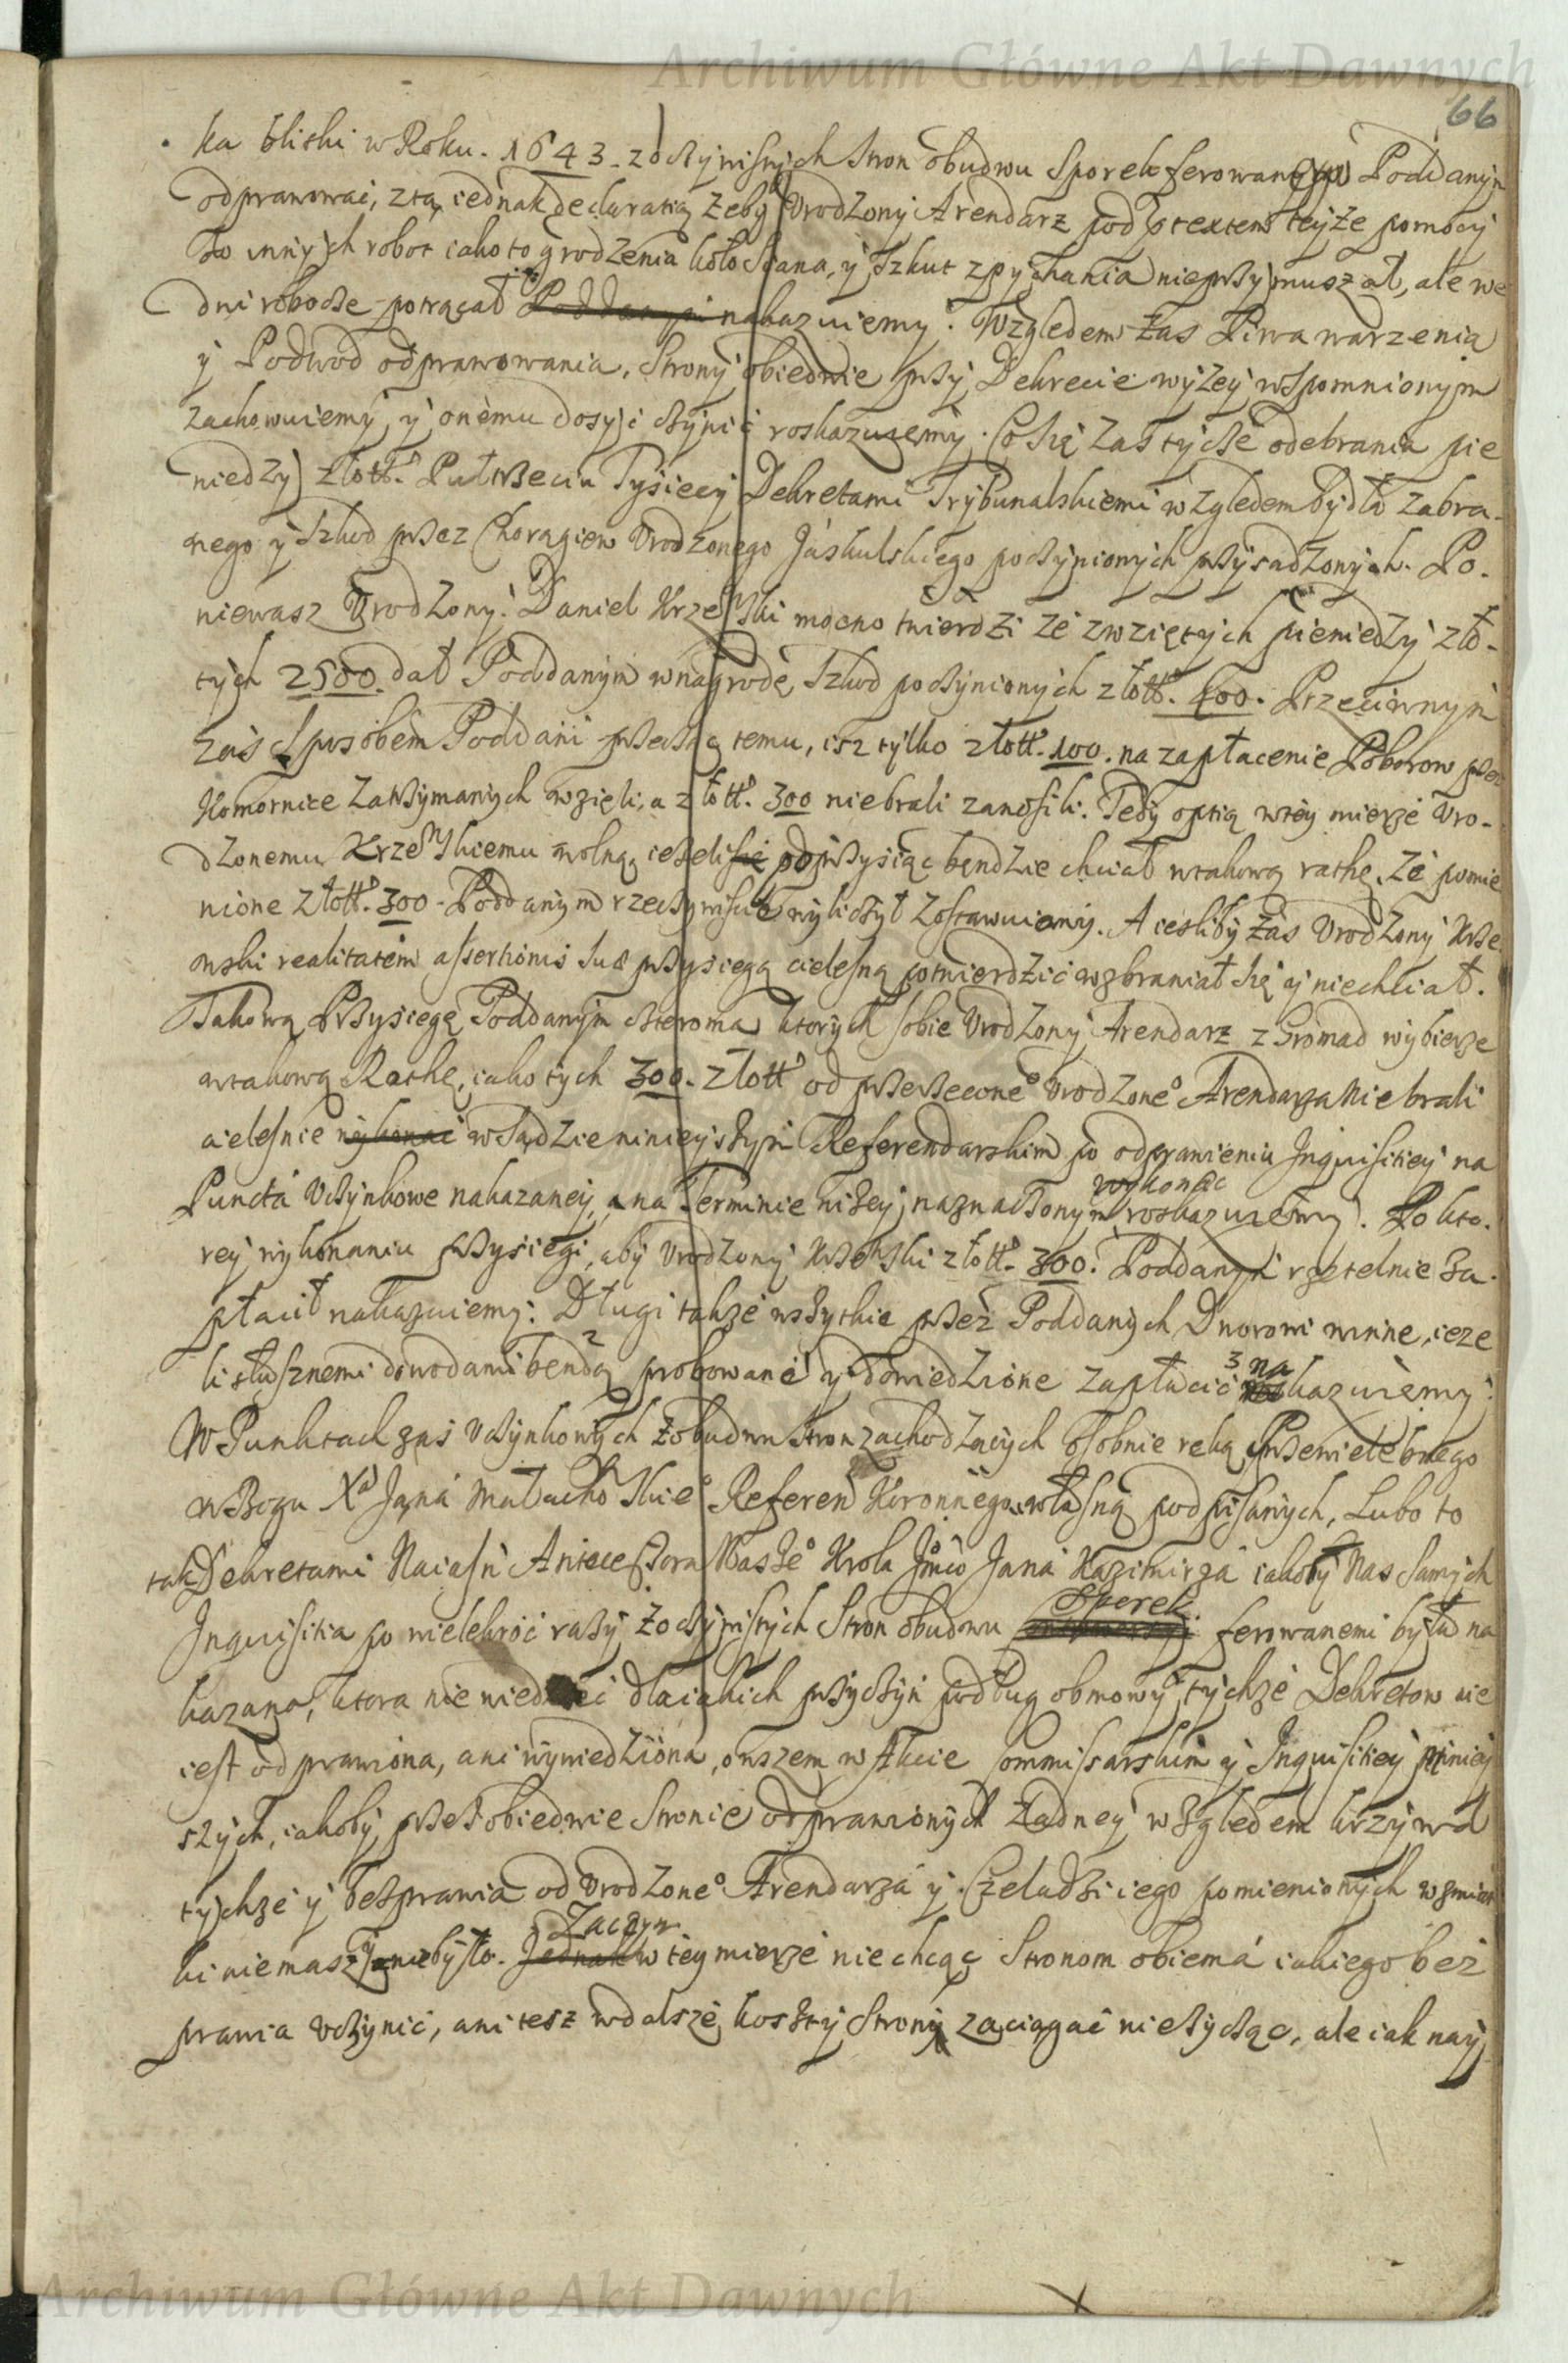 Archiwum Główne Akt Dawnych
66
ka bliski w Roku. 1643. z oczywistych stron obudwu Sporek ferowanego Poddanym
odprawować, z tą iednak declaratią żeby Urodzony Arendarz pod pretextem teyże pomocy
do innych robot iako to grodzenia koło Siana, y Szkut zpychania nieprzymuszał, ale we
dni robocze potrącał Poddanym nakazuiemy. Względem zas Piwa warzenia
y Podwod odprawowania, Strony obiedwie przy Dekrecie wyżey wspomnionym
zachowuiemy, y onemu dosyć czynić roskazuiemy. Co się zas tycze odebrania pie
niedzy złott. Pułtrzeciu Tysięcy Dekretami Trybunalskiemi względem bydła zabra-
nego y Szkod przez Chorągiew Urodzonego Jáskulskiego poczynionych przysadzonych. Po-
niewasz Urodzony Daniel Krzeński mocno twierdzi że z wziętych pieniedzy zło-
tych 2500. dał Poddanym w nagrodę Szkod poczynionych złott. 400. Przeciwnym
zaś sposobem Poddani przeczą temu, isz tylko złott. 100. na zapłacenie Poborow przez
Komornice zatrzymanych wzięli, a złott. 300 niebrali zanosili. Tedy optią w tey mierze Uro-
dzonemu Krzeńskiemu wolną ieżeli się podprzysiąc bendzie chciał w takową rothę, że pomie
nione złott. 300. Poddanym rzeczywiscie wyliczył zostawuiemy. A iesliby zas Urodzony Krze
onski realitatem assertionis suæ przysięgą cielesną potwierdzić wzbraniał się y niechciał.
Takową Przysięgę Poddanym czteroma ktorych sobie Urodzony Arendarz z Gromad wybierze
w takową Rothę, iako tych 300. złott od przerzeconeo Urodzoneo Arendarza niebrali
cielesnie wykonać w Sądzie ninieyszym Referendarskim po odprawieniu Inquisitiey na
Puncta Uczynkowe nakazaney, a na Terminie niżey naznaczonym wykonać roskazuiemy. Po kto-
rey wykonaniu przysięgi, aby Urodzony Krzeński złott. 300. Poddanym rzetelnie za-
płacił nakazuiemy. Długi także wszytkie przez Poddanych Dworowi winne, ieże
li słusznemi dowodami bendą probowane y dowiedzione zapłacić nakazuiemy.
W Punktach zas Uczynkowych z obudwu stron zachodzących osobnie ręką Przewielebnego
w Bogu Xa Jana Małachoskieo Referen Koronnego własną podpisanych, Lubo to
tak Dekretami Naiasn Antecessora Naszeo Krola Jmci Jana Kazimirza iakoby Nas samych
Inquisitia po wielekroć razy z oczywistych Stron obudwu Sporek ferowanemi była na
kazana, ktora nie wiedzieć dla iakich przyczyn podług obmowy tychże Dekretow nie
iest odprawiona, ani wywiedziona, owszem w Akcie Commissarskim y Inquisitiey niniey
szych, iakoby przez obiedwie Stronie odprawionych żadney względem krzywd
tychże y bezprawia od Urodzoneo Arendarza y Czeladzi iego pomienionych wzmian
ki niemasz y niebyło. Zaczym w tey mierze niechcąc Stronom obiema iakiego bez
prawia uczynić, ani tesz w dalsze koszty Strony zaciągać nieżycząc, ale iak nay
Archiwum Główne Akt Dawnych